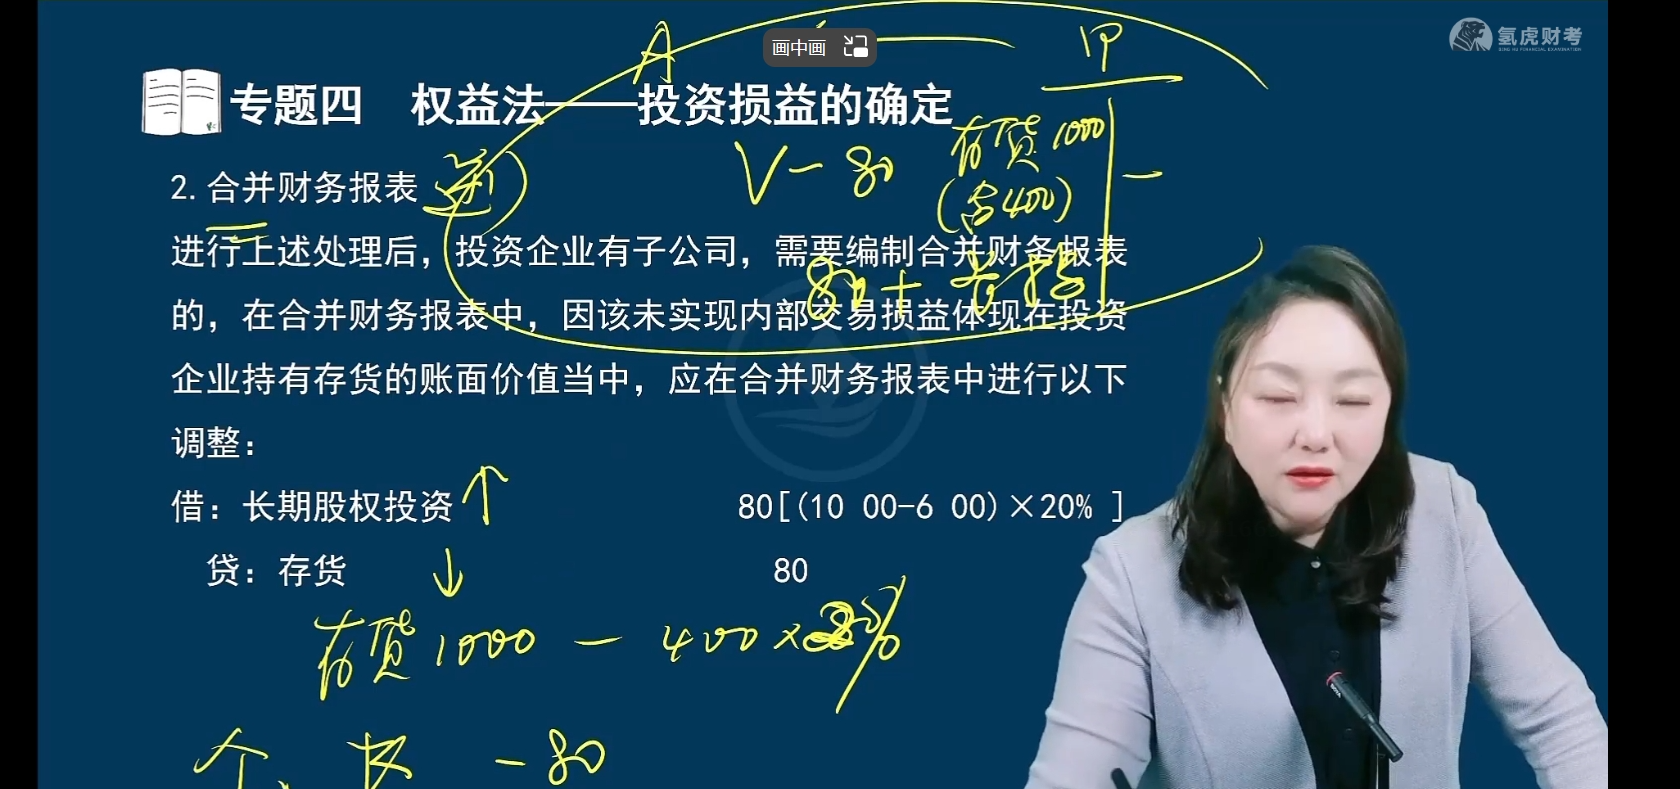 画中画
氢虎财考
A 甲
专题四 权益法——投资损益的确定
存货1000
2.合并财务报表 逆)
V-80
(含400)
进行上述处理后，投资企业有子公司，需要编制合并财务报表
80+长投
的，在合并财务报表中，因该未实现内部交易损益体现在投资
企业持有存货的账面价值当中，应在合并财务报表中进行以下
调整：
借：长期股权投资↑ 80[(10 00-6 00)×20% ]
贷：存货 ↓ 80
存货1000 - 400×20%
个、 -80